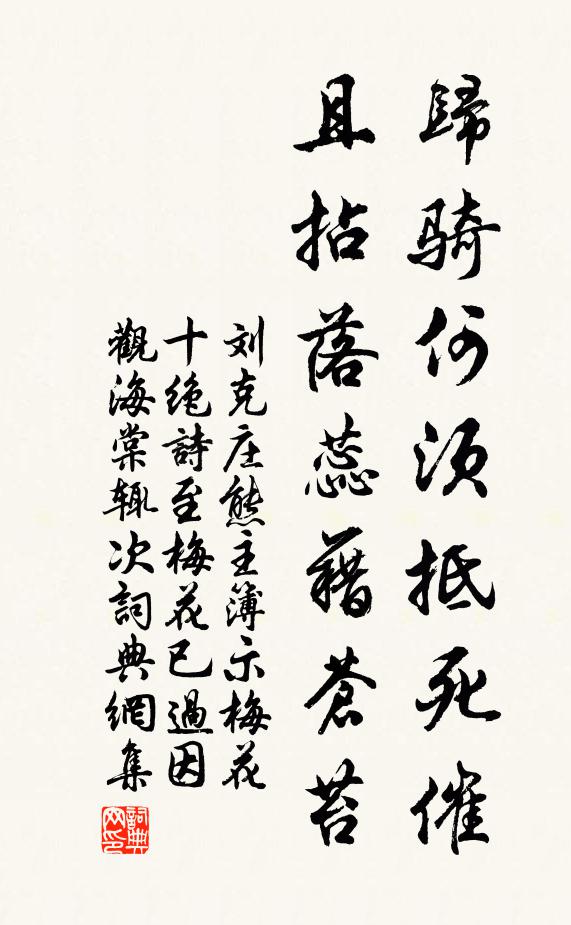 歸騎何須抵死催
且拈落蕊藉蒼苔
刘克庄熊主簿示梅花
十绝詩至梅花已過因
觀海棠辄次詞典網集
詞典网印